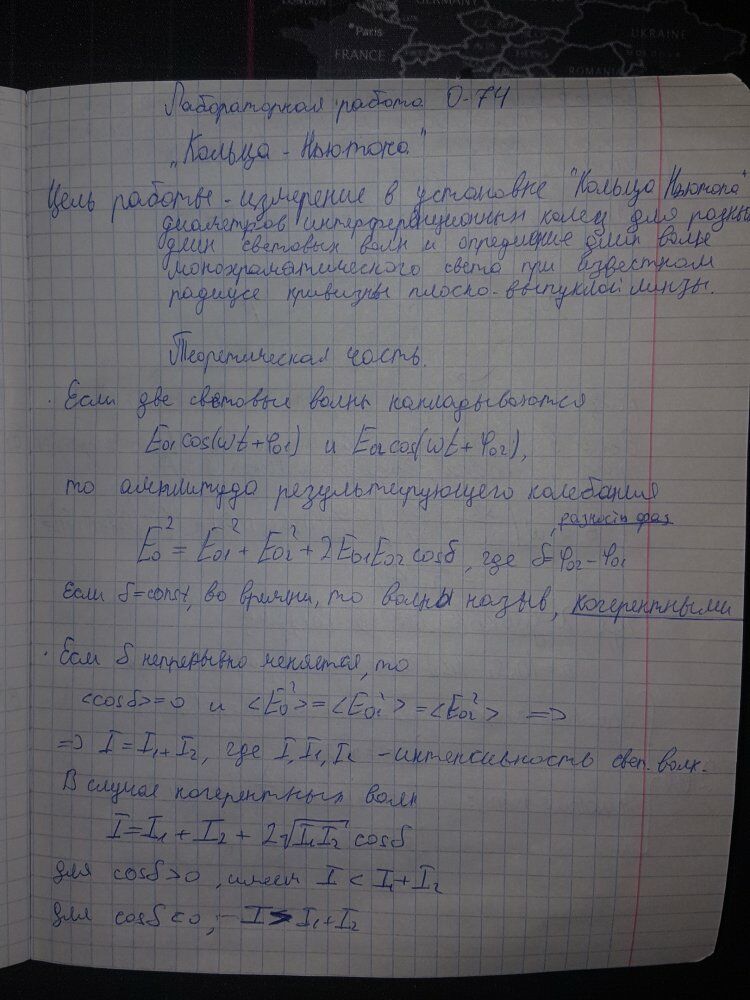 LONDON
GERMANY
Paris
FRANCE
UKRAINE
ROMANIA
Лабораторная работа О-74
„Кольца - Ньютона"
Цель работы - измерение в установке "Кольца Ньютона"
диаметров интерференционных колец для разных
длин световых волн и определение длин волн
монохроматического света при известном
радиусе кривизны плоско-выпуклой линзы.
Теоретическая часть.
· Если две световые волны накладываются
E₀₁cos(ωt+φ₀₁) и E₀₂cos(ωt+φ₀₂),
то амплитуда результирующего колебания
разность фаз
E₀² = E₀₁² + E₀₂² + 2E₀₁E₀₂cosδ, где δ=φ₀₂-φ₀₁
Если δ=const, во времени, то волны назыв, когерентными
· Если δ непрерывно меняется, то
<cosδ>=0 и <E₀²> = <E₀₁²> = <E₀₂²> =>
=> I = I₁+I₂, где I, I₁, I₂ - интенсивность свет. волн.
В случае когерентных волн
I = I₁ + I₂ + 2√I₁I₂ cosδ
для cosδ>0, имеем I < I₁+I₂
для cosδ<0, - I > I₁+I₂